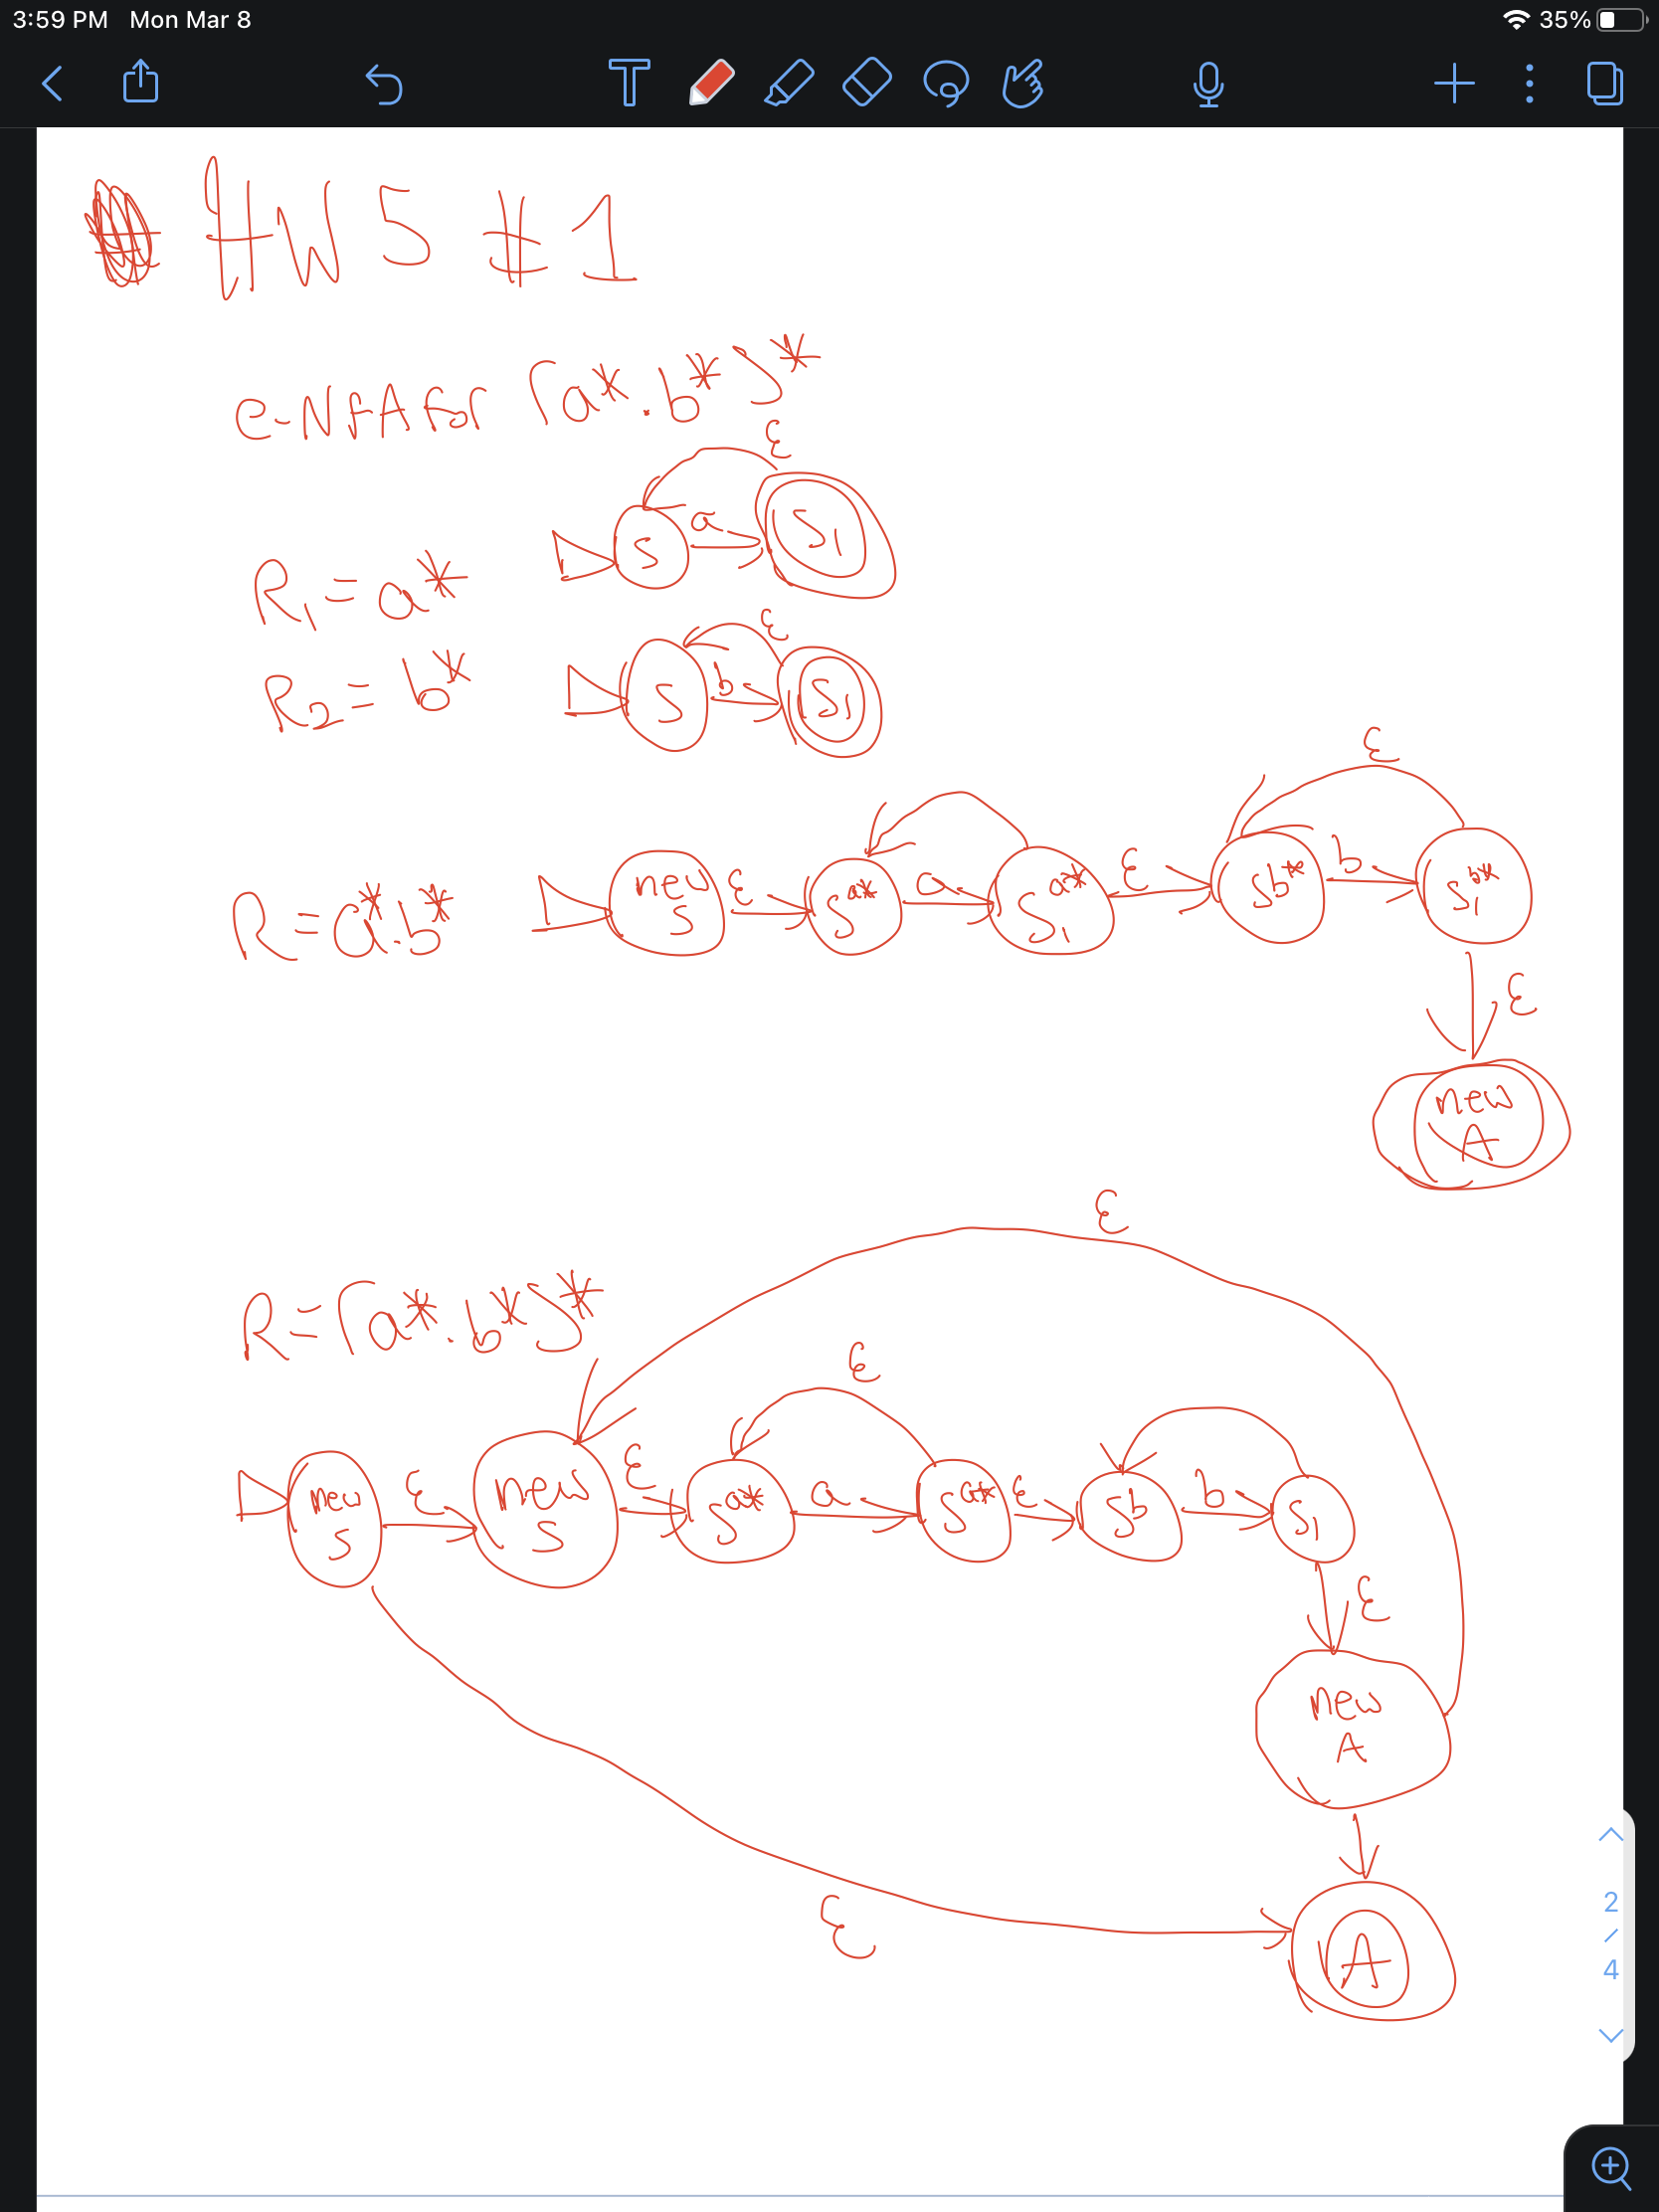 3:59 PM Mon Mar 8 35%
HW 5 #1
e-NfA for [a*.b*]*
ε
R₁ = a* S a S₁
ε
R₂ = b* S b S₁
ε
R = a*.b* new S ε Sᵃ* a S₁ᵃ* ε Sᵇ* b S₁ᵇ*
ε
new A
ε
R = [a*.b*]*
ε
new S ε new S ε Sᵃ* a Sᵃ* ε Sᵇ b S₁
ε
new A
2
/
4
ε
A